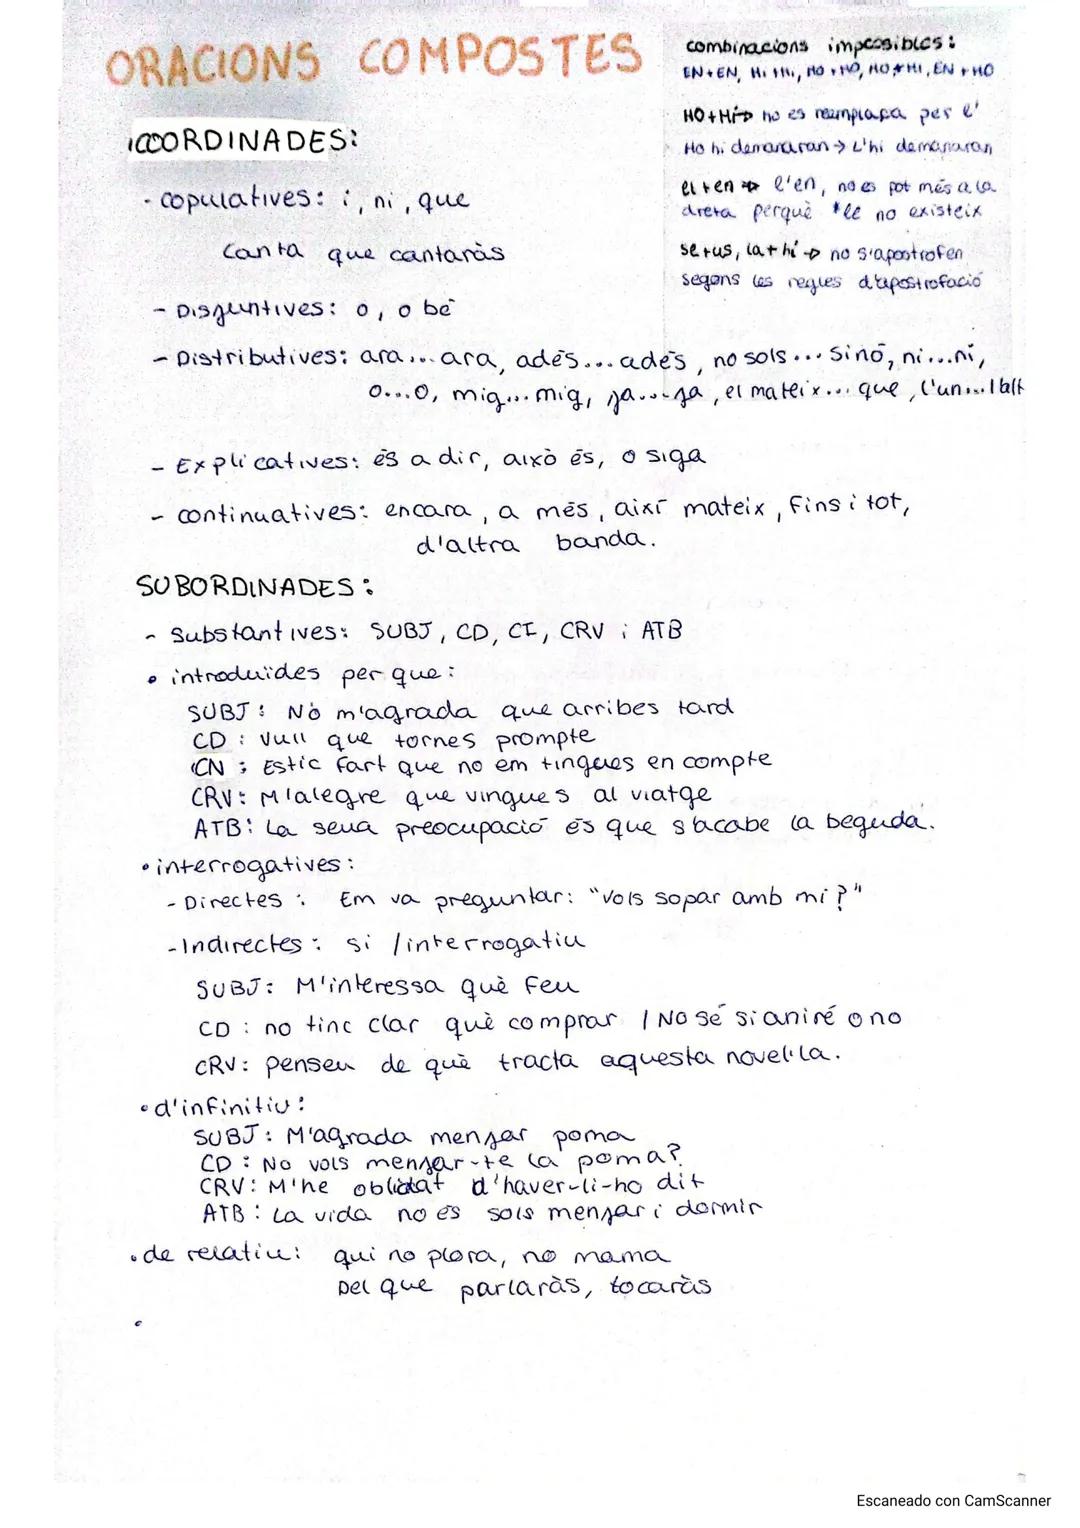 ORACIONS COMPOSTES
COORDINADES:
- copulatives: i, ni, que
Canta que cantaràs
- Disjuntives: o, o bé
- Distributives: ara... ara, adés... adés, no sols... sinó, ni...ni,
o...o, mig... mig, ja...ja, el mateix... que, l'un... l'alt
- Explicatives: és a dir, això és, o siga
- continuatives: encara, a més, així mateix, fins i tot,
d'altra banda.
combinacions impossibles:
EN+EN, HI+HI, HO+HO, HO+HI, EN+HO
HO+HI→ ho es reemplaça per l'
Ho hi demanaran → L'hi demanaran
el+en → l'en, no es pot més a la
dreta perquè *le no existeix
se+us, la+hi → no s'apostrofen
segons les regles d'apostrofació
SUBORDINADES:
- Substantives: SUBJ, CD, CI, CRV i ATB
• introduïdes per que:
SUBJ: No m'agrada que arribes tard
CD: Vull que tornes prompte
CN: Estic fart que no em tingues en compte
CRV: M'alegre que vingues al viatge
ATB: La seua preocupació és que s'acabe la beguda.
• interrogatives:
- Directes: Em va preguntar: "Vols sopar amb mi?"
- Indirectes: si / interrogatiu
SUBJ: M'interessa què feu
CD: no tinc clar què comprar / No sé si aniré o no
CRV: penseu de què tracta aquesta novel·la.
• d'infinitiu:
SUBJ: M'agrada menjar poma
CD: No vols menjar-te la poma?
CRV: M'he oblidat d'haver-li-ho dit
ATB: La vida no és sols menjar i dormir
• de relatiu: qui no plora, no mama
Del que parlaràs, tocaràs
Escaneado con CamScanner